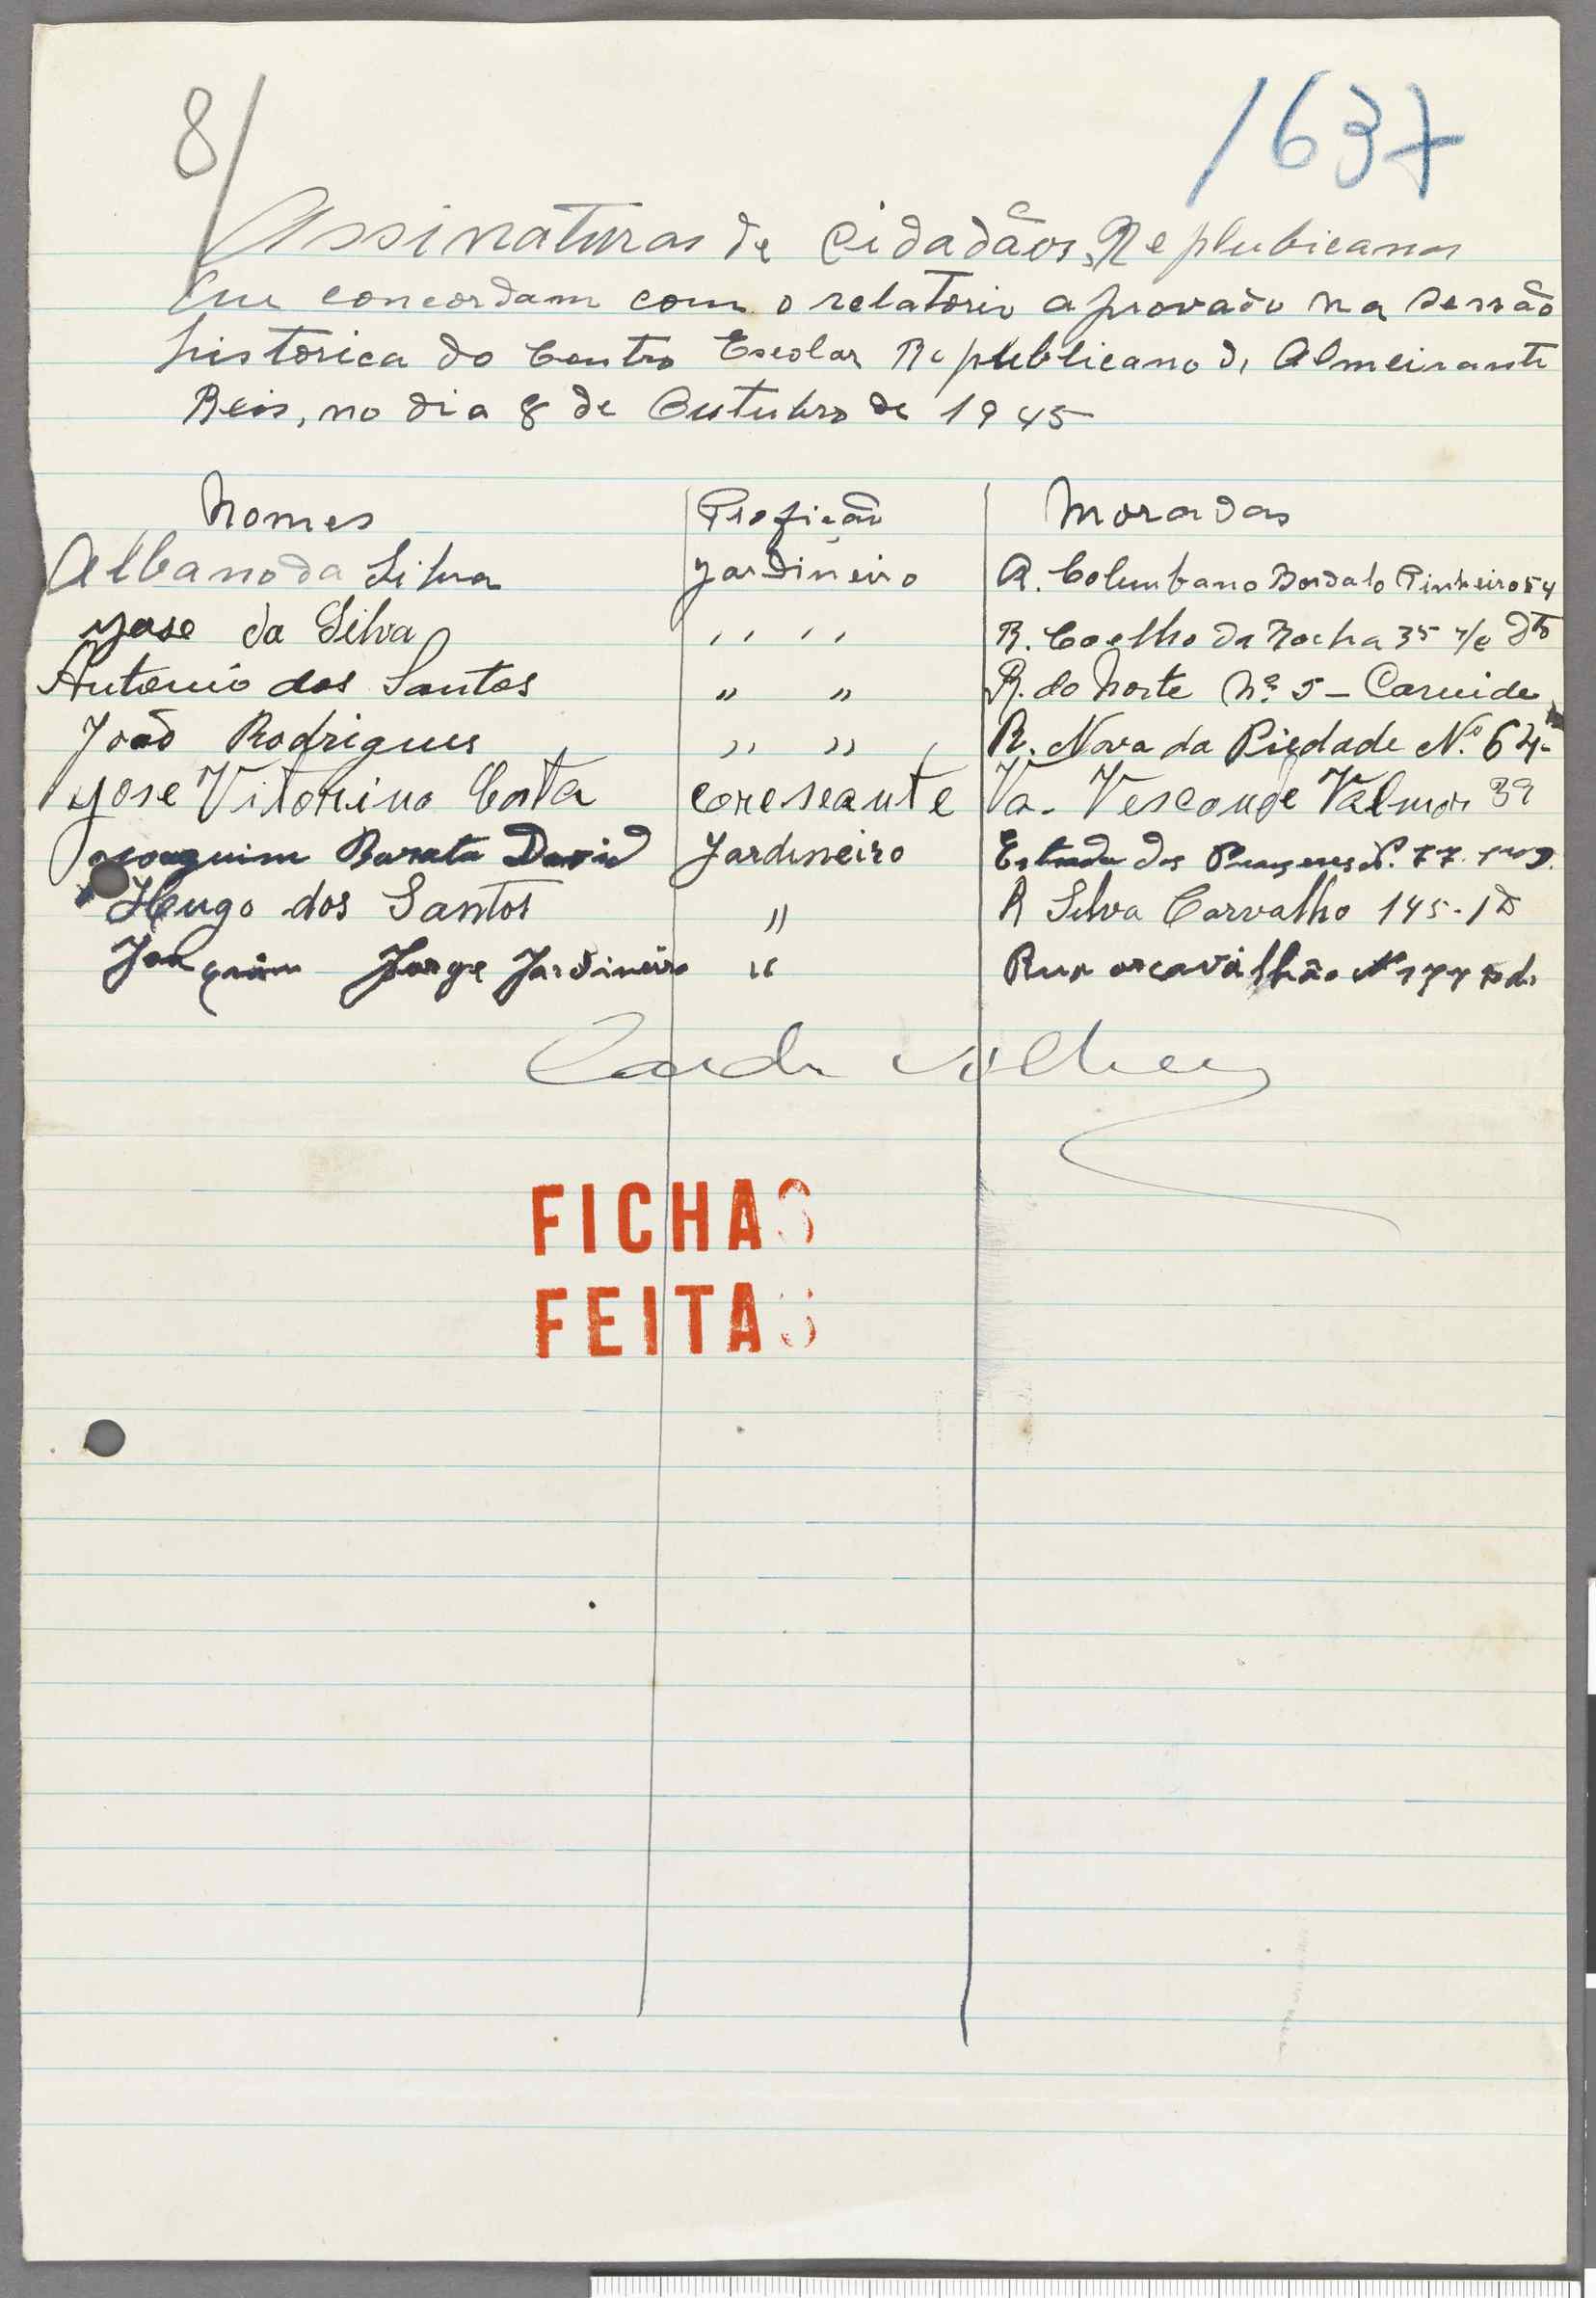 8/
1637
Assinaturas de Cidadãos Replubicanos
Que concordam com o relatorio aprovado na sessão
historica do Centro Escolar Republicano de Almeirante
Reis, no dia 8 de Outubro de 1945
Nomes Profição Moradas
Albano da Silva Jardineiro R. Columbano Bordalo Pinheiro 54
Jose da Silva ,, ,, R. Coelho da Rocha 35 r/c Dto
Antonio dos Santos " " R. do Norte Nº 5 - Carnide
João Rodrigues " " R. Nova da Piedade N.º 64-
Jose Vitorino Costa Coreseante Va. Vesconde Valmor 39
Joaquim Barata David Jardineiro Estrada dos Nº. 77
Hugo dos Santos " R Silva Carvalho 145-1º
Joaquim Jorge Jardineiro " Rua arcavalhão Nº 177
FICHAS
FEITAS